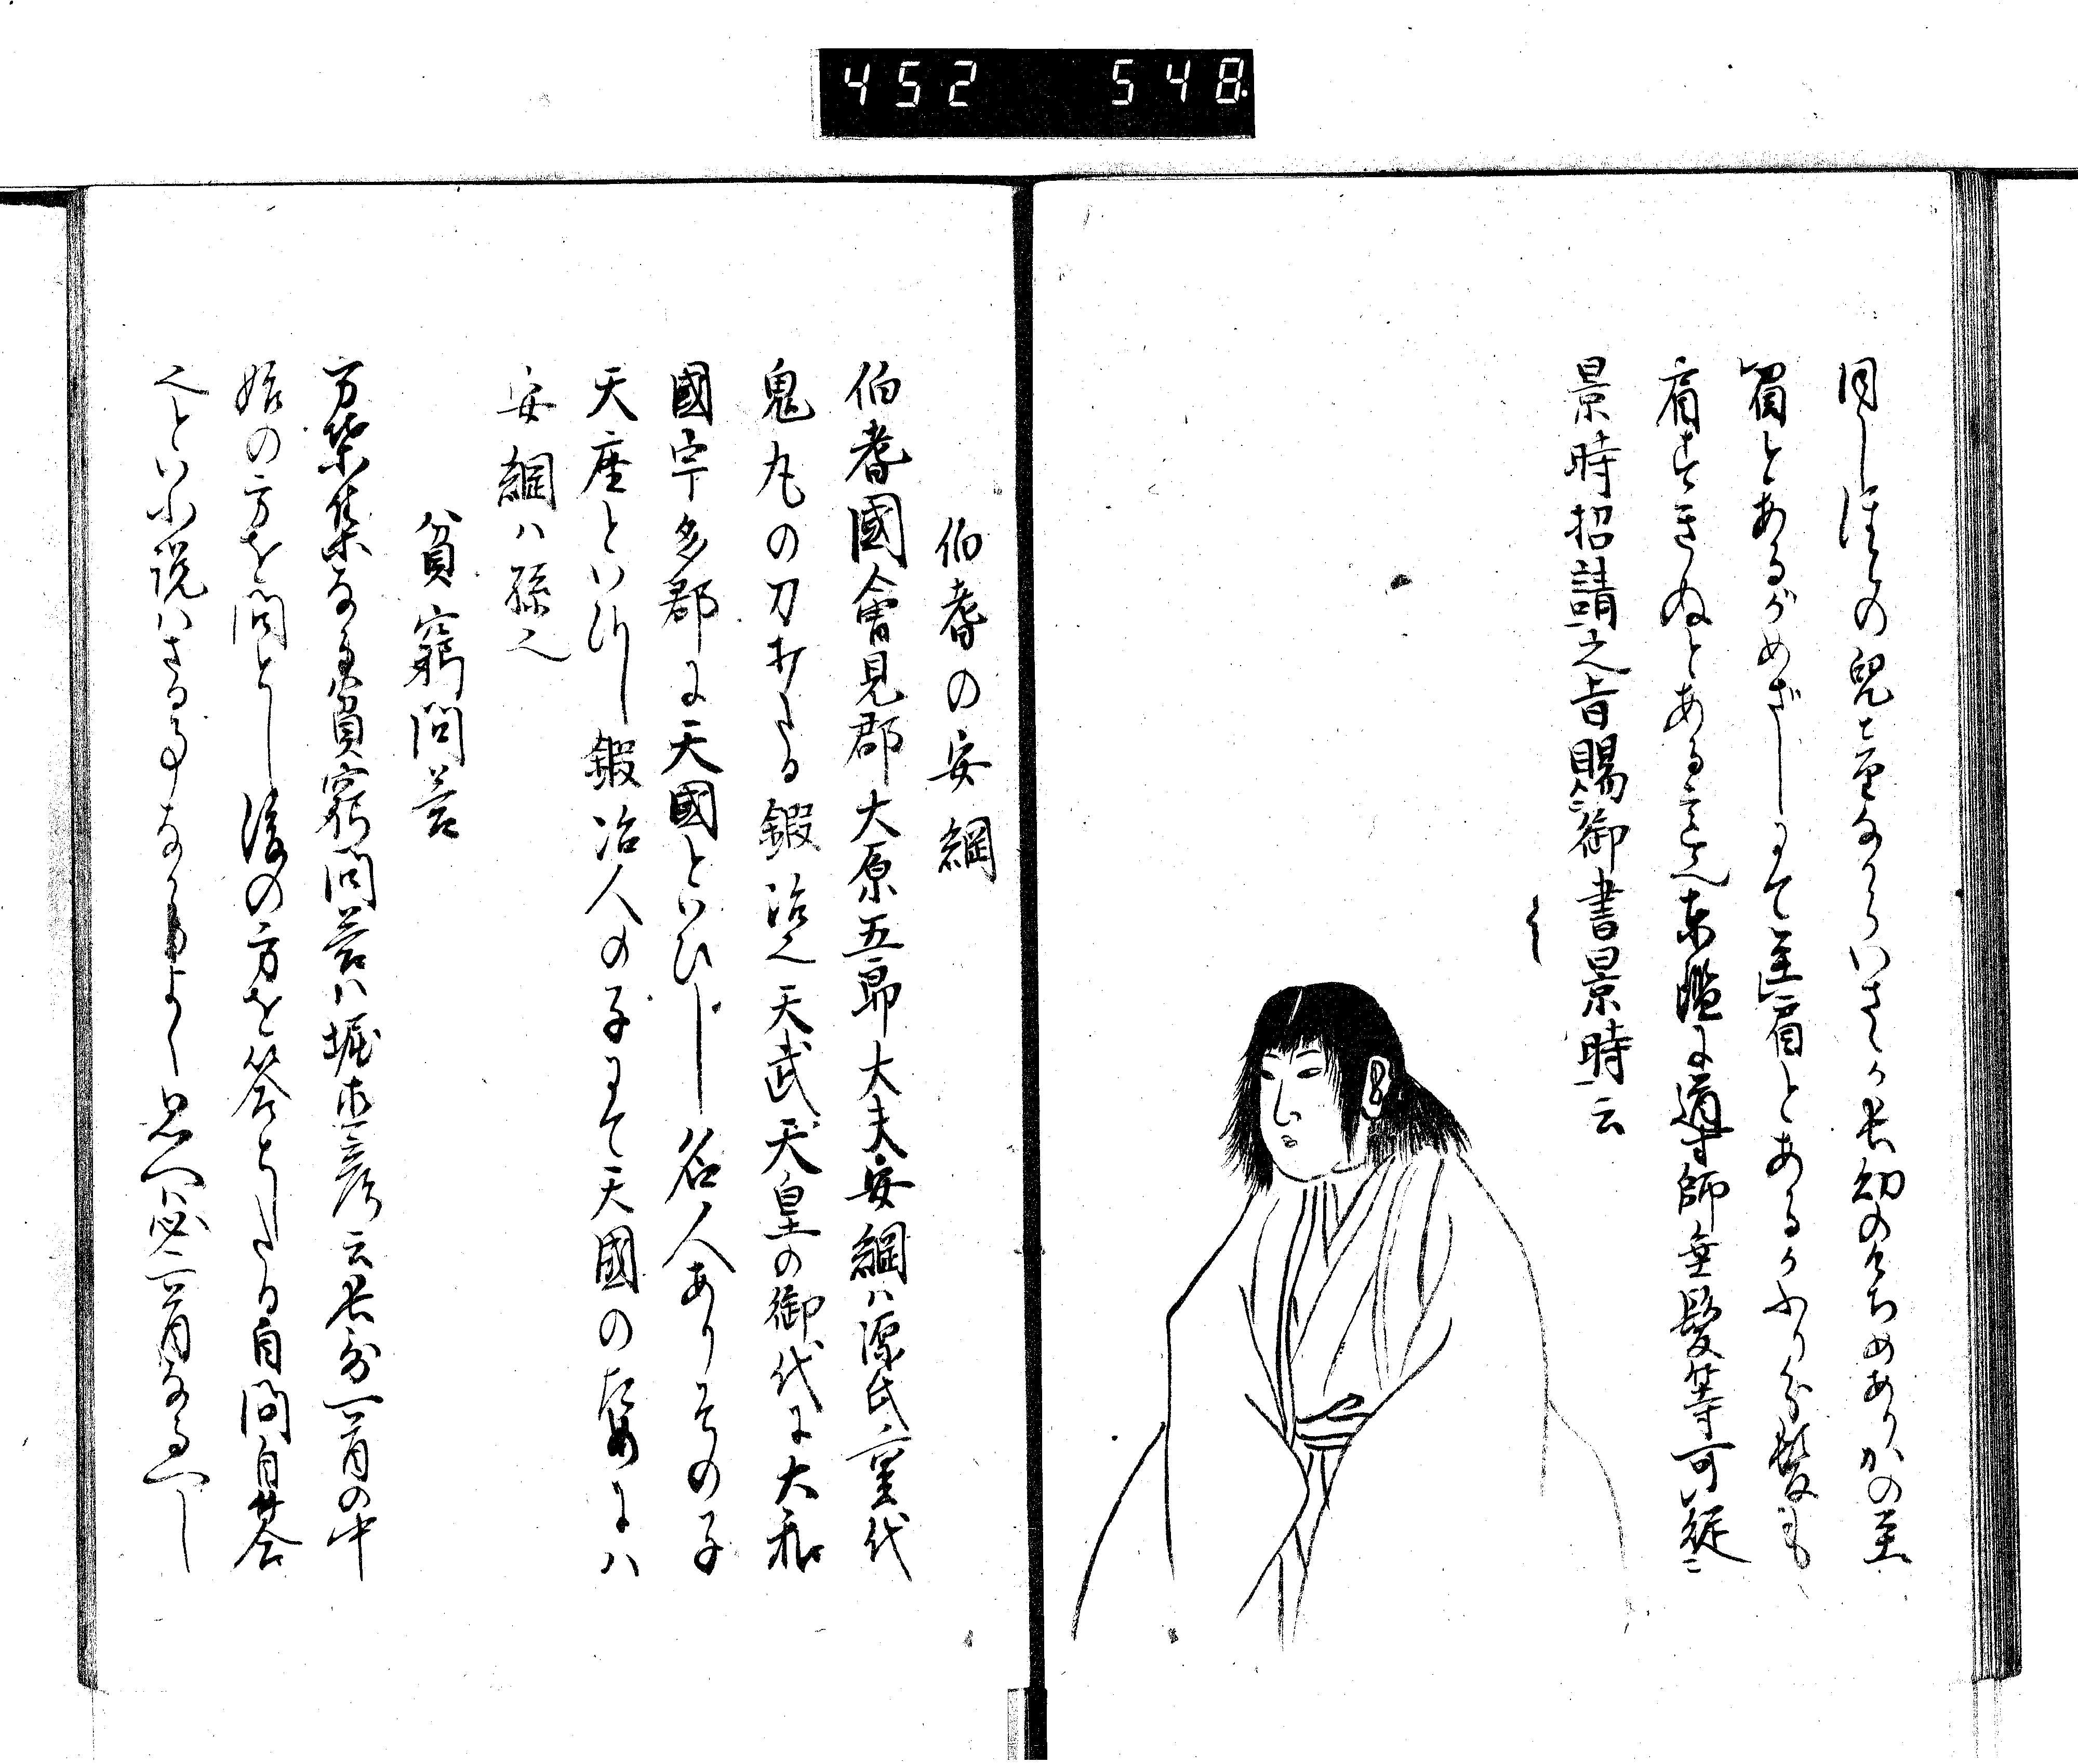 452 548
同しほとの兒童なからいさゝか長幼のけちめありかの至
眉とあるがめざしにて至肩とあるかふり分髪も
肩すきぬとある之東鑑に導師垂髪等可従
景時招請之旨賜御書景時云
云
伯耆の安綱
伯耆國會見郡大原五郎大夫安綱ハ源氏重代
鬼丸の刀打たる鍛冶之天武天皇の御代に大和
國宇多郡に天國といひし名人ありその子
天座といひし鍛冶人の子にて天國のためにハ
安綱ハ孫之
貧窮問答
万葉集なる貧窮問答ハ堀本彦云長哥一首の中
始の方を問とし後の方を答としたる自問自答
之といふ説ハさる事なからよく思へハ必二首なるへし